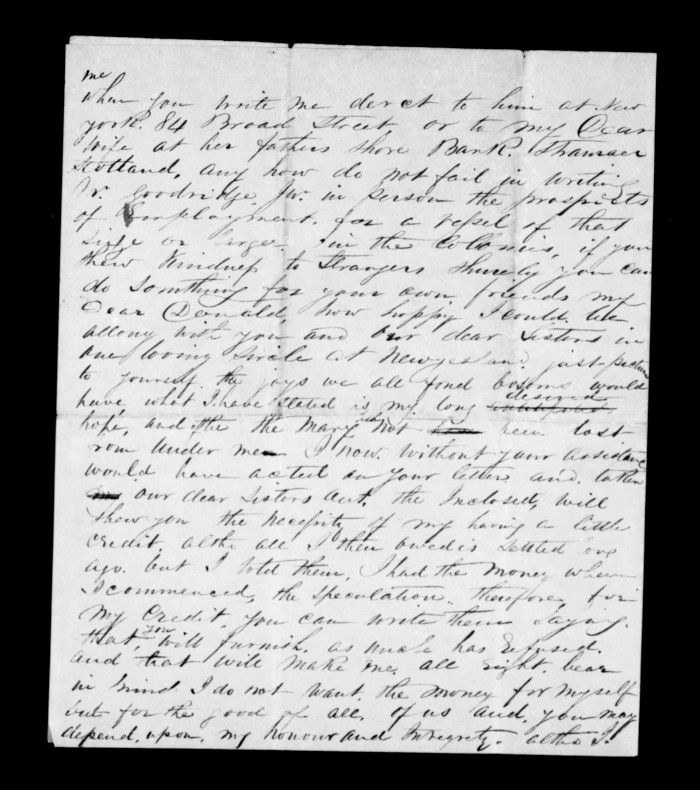 me
when you write me derect to him at New
york. 84 Broad Street or to my Dear
Wife at her fathers Shore Bank.
Scotland, any how do not fail in writing
Goodridge Jnr. in person the prospects
of Employment. for a vessel of that
Size or larger in the Colonies, if you
shew Kindness to Strangers Shurely you can
do Something for your own friends my
Dear Donald, how happy I could be
allong with you and Our dear Sisters in
one loving Circle at and just picture
to yourself. the joys we all fond bosoms would
have, what I have stated is my long desired
hope, and the Mary had not been lost
from Under me I now without your assistance
would have acted on your letter and taken
our dear Sisters out, the Inclosed, will
Shew you the Necessity of my having a little
Credit. altho all I then owed is Settled long
ago. but I told them, I had the Money when
I commenced, the Speculation. therefore, for
My Credit, you can write them Saying.
that, you will furnish. as uncle has Refused.
and that will make me. all right. bear
in mind I do not want. the money for myself
but for the good of all. of us and, you may
depend. upon. my honour and Integrety. altho I.